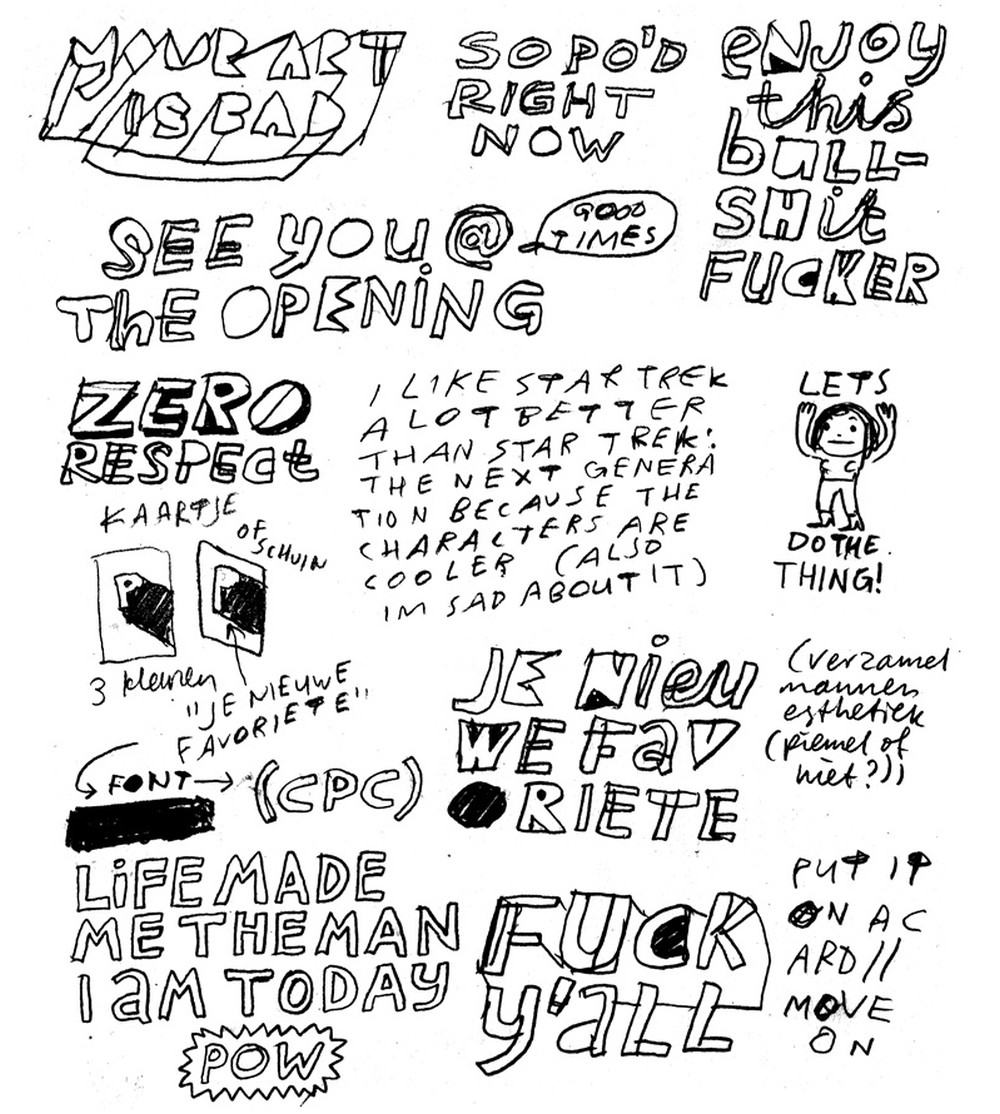 YOUR ART
IS BAD
SO PO'D
RIGHT
NOW
ENJOY
this
bULL-
SHit
FUCKER
SEE YOU @
THE OPENING
GOOD
TIMES
ZERO
RESPECt
I LIKE STAR TREK
A LOT BETTER
THAN STAR TREK:
THE NEXT GENERA
TION BECAUSE THE
CHARACTERS ARE
COOLER (ALSO
IM SAD ABOUT IT)
LETS
DO THE
THING!
KAARTJE
OF
SCHUIN
P
P
3 kleuren
"JE NIEUWE
FAVORIETE"
JE Nieu
WE FaV
ORIETE
(verzamel
mannen
esthetiek
(piemel of
niet?))
FONT
(CPC)
LiFE MADE
ME THE MAN
I aM TODAY
POW
FUCK
y'aLL
PUT IT
ON A C
ARD//
MOVE
ON